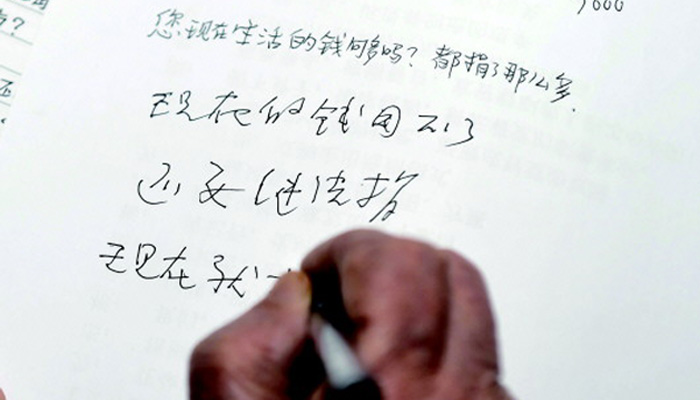 您现在生活的钱够吗？都捐了那么多.
现在的钱用不了
还要继续捐
现在我一